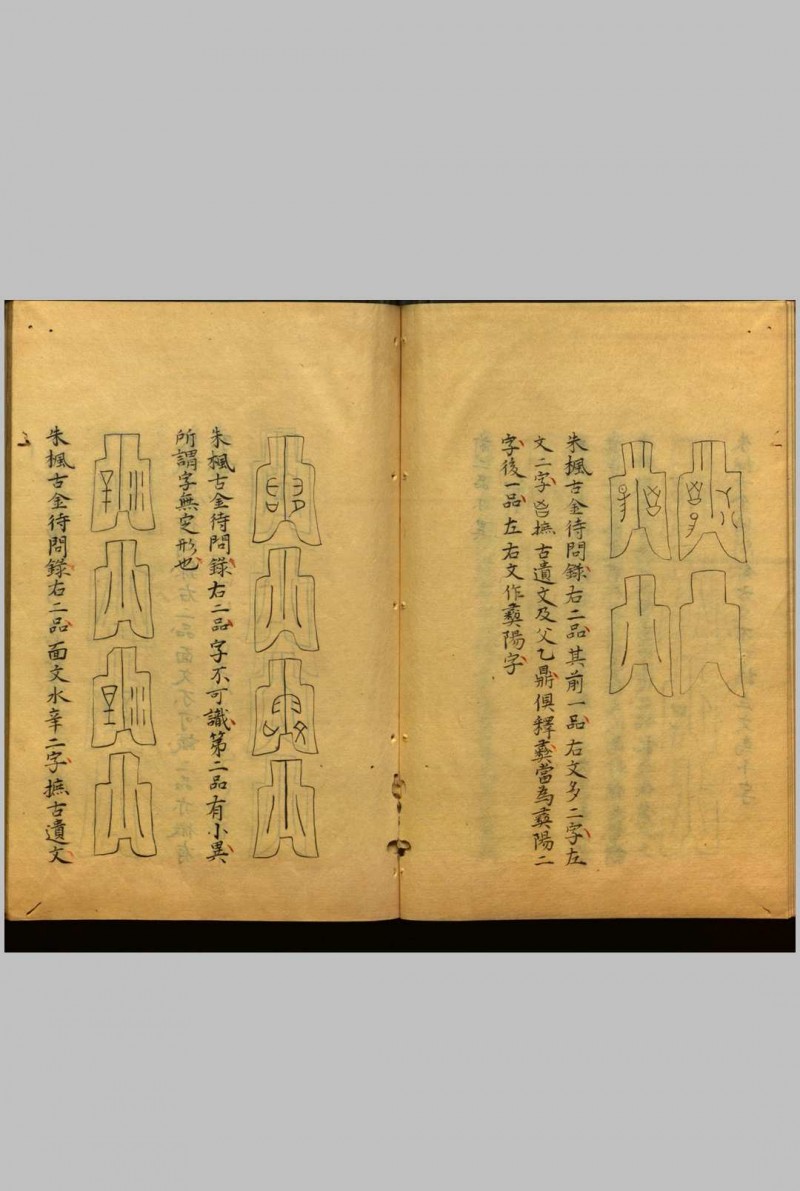 朱楓古金待問錄右二品其前一品右文多二字左
文二字㠯摭古遺文及父乙鼎俱釋彝當為彝陽二
字後一品左右文作彝陽字
朱楓古金待問錄右二品字不可識第二品有小異
所謂字無定形也
朱楓古金待問錄右二品面文水辛二字摭古遺文